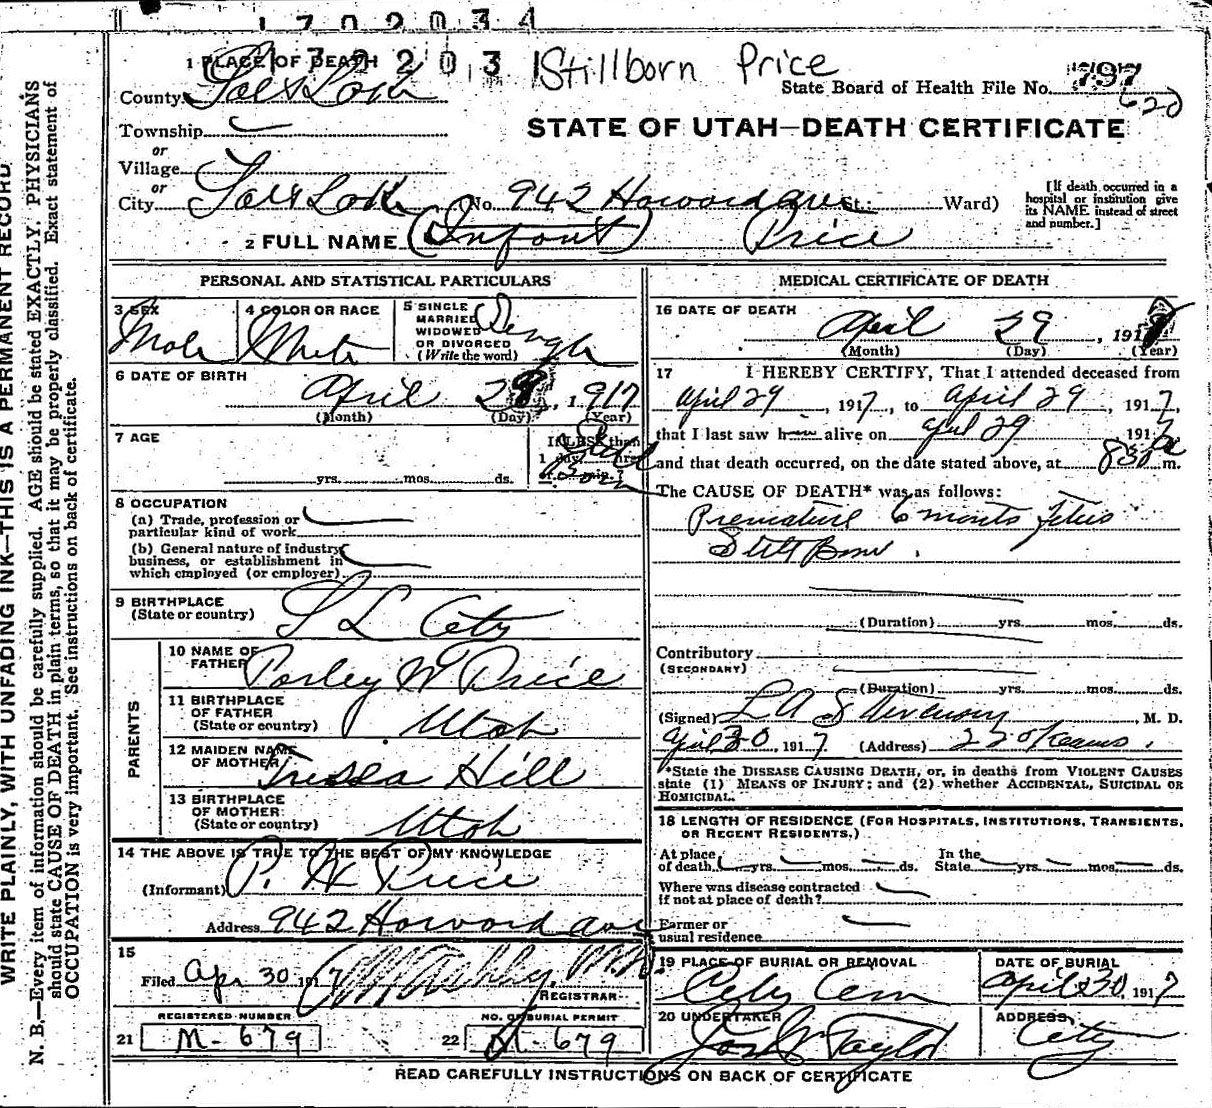 1702034
1 PLACE OF DEATH 170203 Stillborn Price
State Board of Health File No. 797
620
County Salt Lake
STATE OF UTAH—DEATH CERTIFICATE
Township
or
Village
or
City Salt Lake (No. 942 Howard ave St.; Ward)
[If death occurred in a hospital or institution give its NAME instead of street and number.]
2 FULL NAME (Infant) Price
PERSONAL AND STATISTICAL PARTICULARS
3 SEX
Male
4 COLOR OR RACE
White
5 SINGLE
MARRIED
WIDOWED
OR DIVORCED
(Write the word)
Single
6 DATE OF BIRTH
April 29, 1917
(Month) (Day) (Year)
7 AGE
yrs. mos. ds.
If LESS than
1 day hrs.
or min.?
Still Born
8 OCCUPATION
(a) Trade, profession or
particular kind of work
(b) General nature of Industry,
business, or establishment in
which employed (or employer)
9 BIRTHPLACE
(State or country)
S L City
PARENTS
10 NAME OF
FATHER Parley W Price
11 BIRTHPLACE
OF FATHER
(State or country) Utah
12 MAIDEN NAME
OF MOTHER Tressa Hill
13 BIRTHPLACE
OF MOTHER
(State or country) Utah
14 THE ABOVE IS TRUE TO THE BEST OF MY KNOWLEDGE
(Informant) P. W Price
Address 942 Howard ave
15
Filed Apr 30 1917
REGISTRAR
REGISTERED NUMBER
21 M-679
NO. OF BURIAL PERMIT
22 M-679
MEDICAL CERTIFICATE OF DEATH
16 DATE OF DEATH
April 29, 1917
(Month) (Day) (Year)
17 I HEREBY CERTIFY, That I attended deceased from
April 29, 1917, to April 29, 1917,
that I last saw him alive on April 29 1917,
and that death occurred, on the date stated above, at 830 a m.
The CAUSE OF DEATH* was as follows:
Premature 6 months fetus
Still Born.
(Duration) yrs. mos. ds.
Contributory
(SECONDARY)
(Duration) yrs. mos. ds.
(Signed) L A Stevenson, M. D.
April 30, 1917 (Address)
*State the DISEASE CAUSING DEATH, or, in deaths from VIOLENT CAUSES
state (1) MEANS OF INJURY; and (2) whether ACCIDENTAL, SUICIDAL OR
HOMICIDAL.
18 LENGTH OF RESIDENCE (FOR HOSPITALS, INSTITUTIONS, TRANSIENTS,
OR RECENT RESIDENTS.)
At place
of death yrs. mos. ds.
In the
State yrs. mos. ds.
Where was disease contracted
if not at place of death?
Former or
usual residence
19 PLACE OF BURIAL OR REMOVAL
City Cem
DATE OF BURIAL
April 30 1917
20 UNDERTAKER
Jos Wm Taylor
ADDRESS
City
READ CAREFULLY INSTRUCTIONS ON BACK OF CERTIFICATE
WRITE PLAINLY, WITH UNFADING INK—THIS IS A PERMANENT RECORD
N. B.—Every item of information should be carefully supplied. AGE should be stated EXACTLY. PHYSICIANS
should state CAUSE OF DEATH in plain terms, so that it may be properly classified. Exact statement of
OCCUPATION is very important. See instructions on back of certificate.